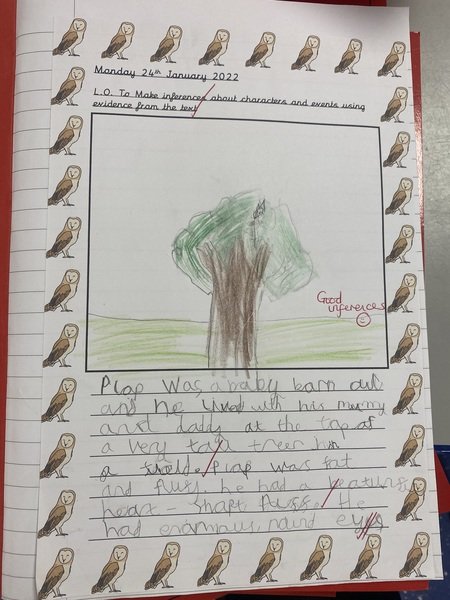 Monday 24th January 2022
L.O. To Make inferences about characters and events using
evidence from the text
Good
inferences
Plop was a baby barn owl
and he lived with his mummy
and daddy at the top of
a very tall tree in
a Plop was fat
and fluffy he had a
heart - shapt he
had enormous, round eyes